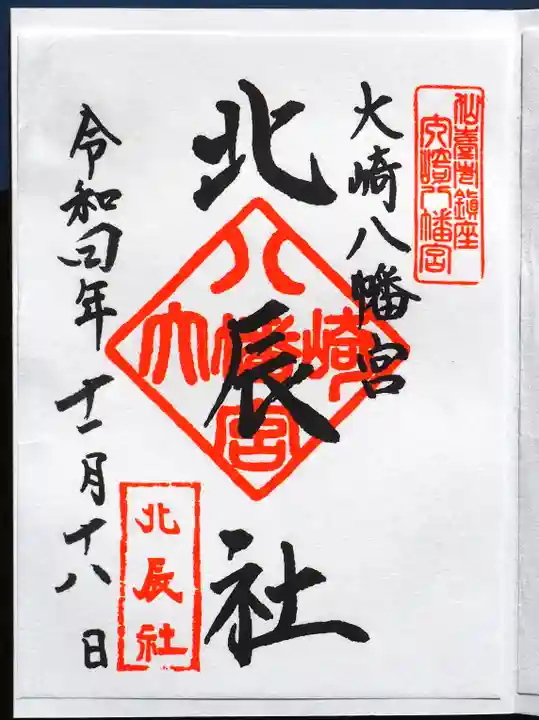 仙臺総鎮座
大崎八幡宮
大崎八幡宮
北辰社
八
大幡崎
宮
北辰社
令和四年十一月十八日